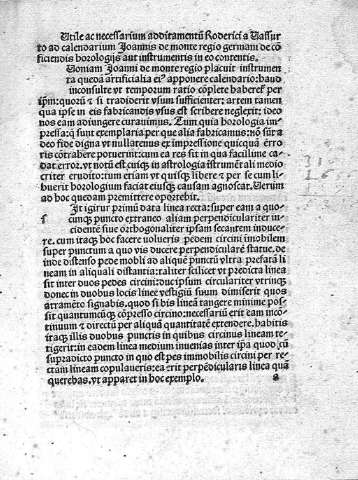 Utile ac necessarium additamentū Roderici a Uassur
to ad calendarium Joannis de monte regio germani de cō
ficiendis horologijs aut instrumentis in eo contentis.
Uoniam Joanni de monte regio placuit instrumen
ta quedā artificialia ei⁹ apponere calendario: haud
inconsulte vt temporum ratio cōplete haberet̄ per
ip̄m: quorū & si tradiderit vsum sufficienter: artem tamen
qua ipse in eis fabricandis vsus est scribere neglexit: ideo
nos eam adiungere curauimus. Tum quia horologia im
pressa: q̄ sunt exemplaria per que alia fabricamus: nō sūt a
deo fide digna vt nullatenus ex impressione quicquā erro
ris cōtrahere potuerint: cum ea res sit in qua facillime ca
dat error. vt notū est iis: qui in astrologia īstrumēt̄ ali medio
criter erudito: tum etiam vt quisq̄ libere & per se cum li
buerit horologium faciat eiusq̄ causam agnoscat. Uerum
ad hoc quedam premittere oportebit.
It igitur primū data linea recta: super eam a quo
s cunq̄ puncto extraneo aliam perpendiculariter in
cidente siue orthogonaliter ipsam secantem induce
re. cum itaq̄ hoc facere uolueris pedem circini imobilem
super punctum a quo vis ducere perpendiculare statue. de
inde distenso pede mobli ad aliquē punctū vltra prefatā li
neam in aliquali distantia: taliter scilicet vt predicta linea
sit inter duos pedes circini: duc ipsum circulariter vtrinq̄
donec in duobus locis linee vestigiū suum dimiserit quos
atramēto signabis. quod si bis lineā tangere minime pos
sit quantumcūq̄ cōpresso circino: necessariū erit eam inco
tinuum & directū per aliquā quantitatē extendere. habitis
itaq̄ illis duobus punctis in quibus circinus lineam te
tigerit: in eadem linea medium inuenias inter ip̄a quod cū
supradicto puncto in quo est pes immobilis circini per re
ctam lineam copulaueris: ea erit perpēdicularis linea quā
querebas. vt apparet in hoc exemplo. a